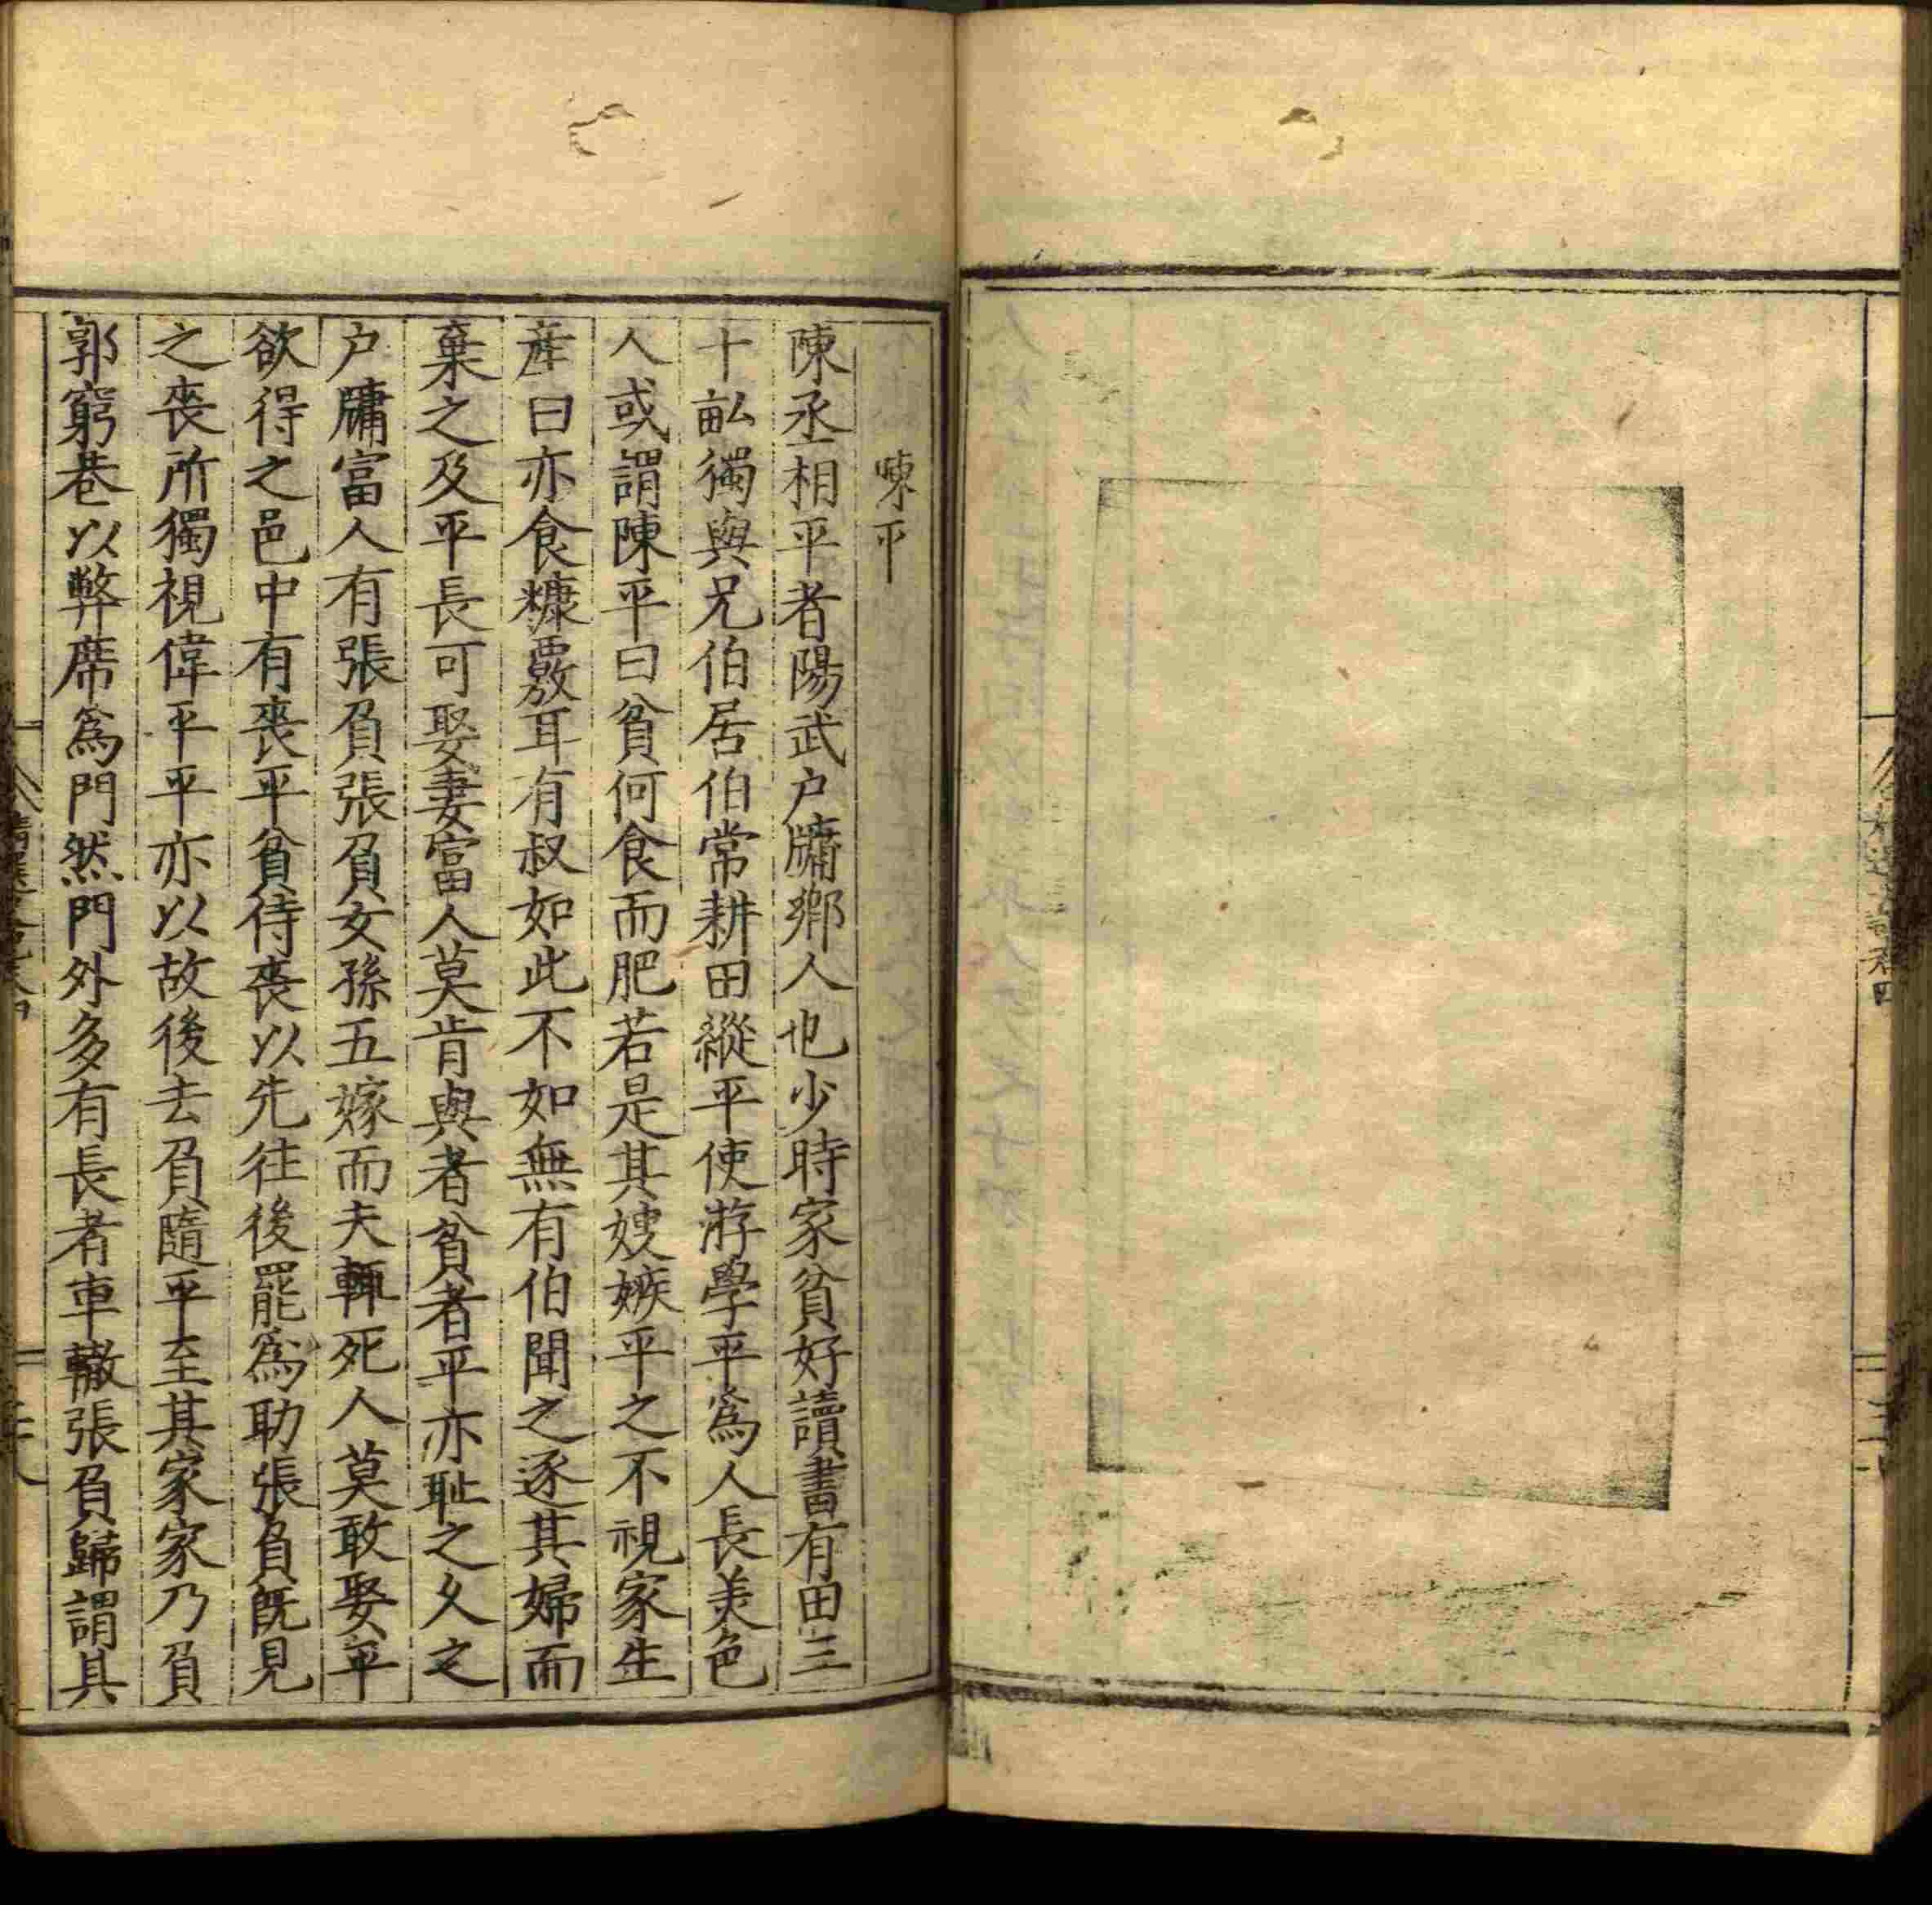 陳平
陳丞相平者陽武户牖鄉人也少時家貧好讀書有田三
十畝獨與兄伯居伯常耕田縱平使游學平爲人長美色
人或謂陳平曰貧何食而肥若是其嫂嫉平之不視家生
産曰亦食糠覈耳有叔如此不如無有伯聞之逐其婦而
棄之及平長可娶妻富人莫肯與者貧者平亦恥之久之
户牖富人有張負張負女孫五嫁而夫輒死人莫敢娶平
欲得之邑中有喪平貧待喪以先往後罷爲助張負旣見
之喪所獨視偉平平亦以故後去負隨平至其家家乃負
郭窮巷以弊席爲門然門外多有長者車轍張負歸謂其